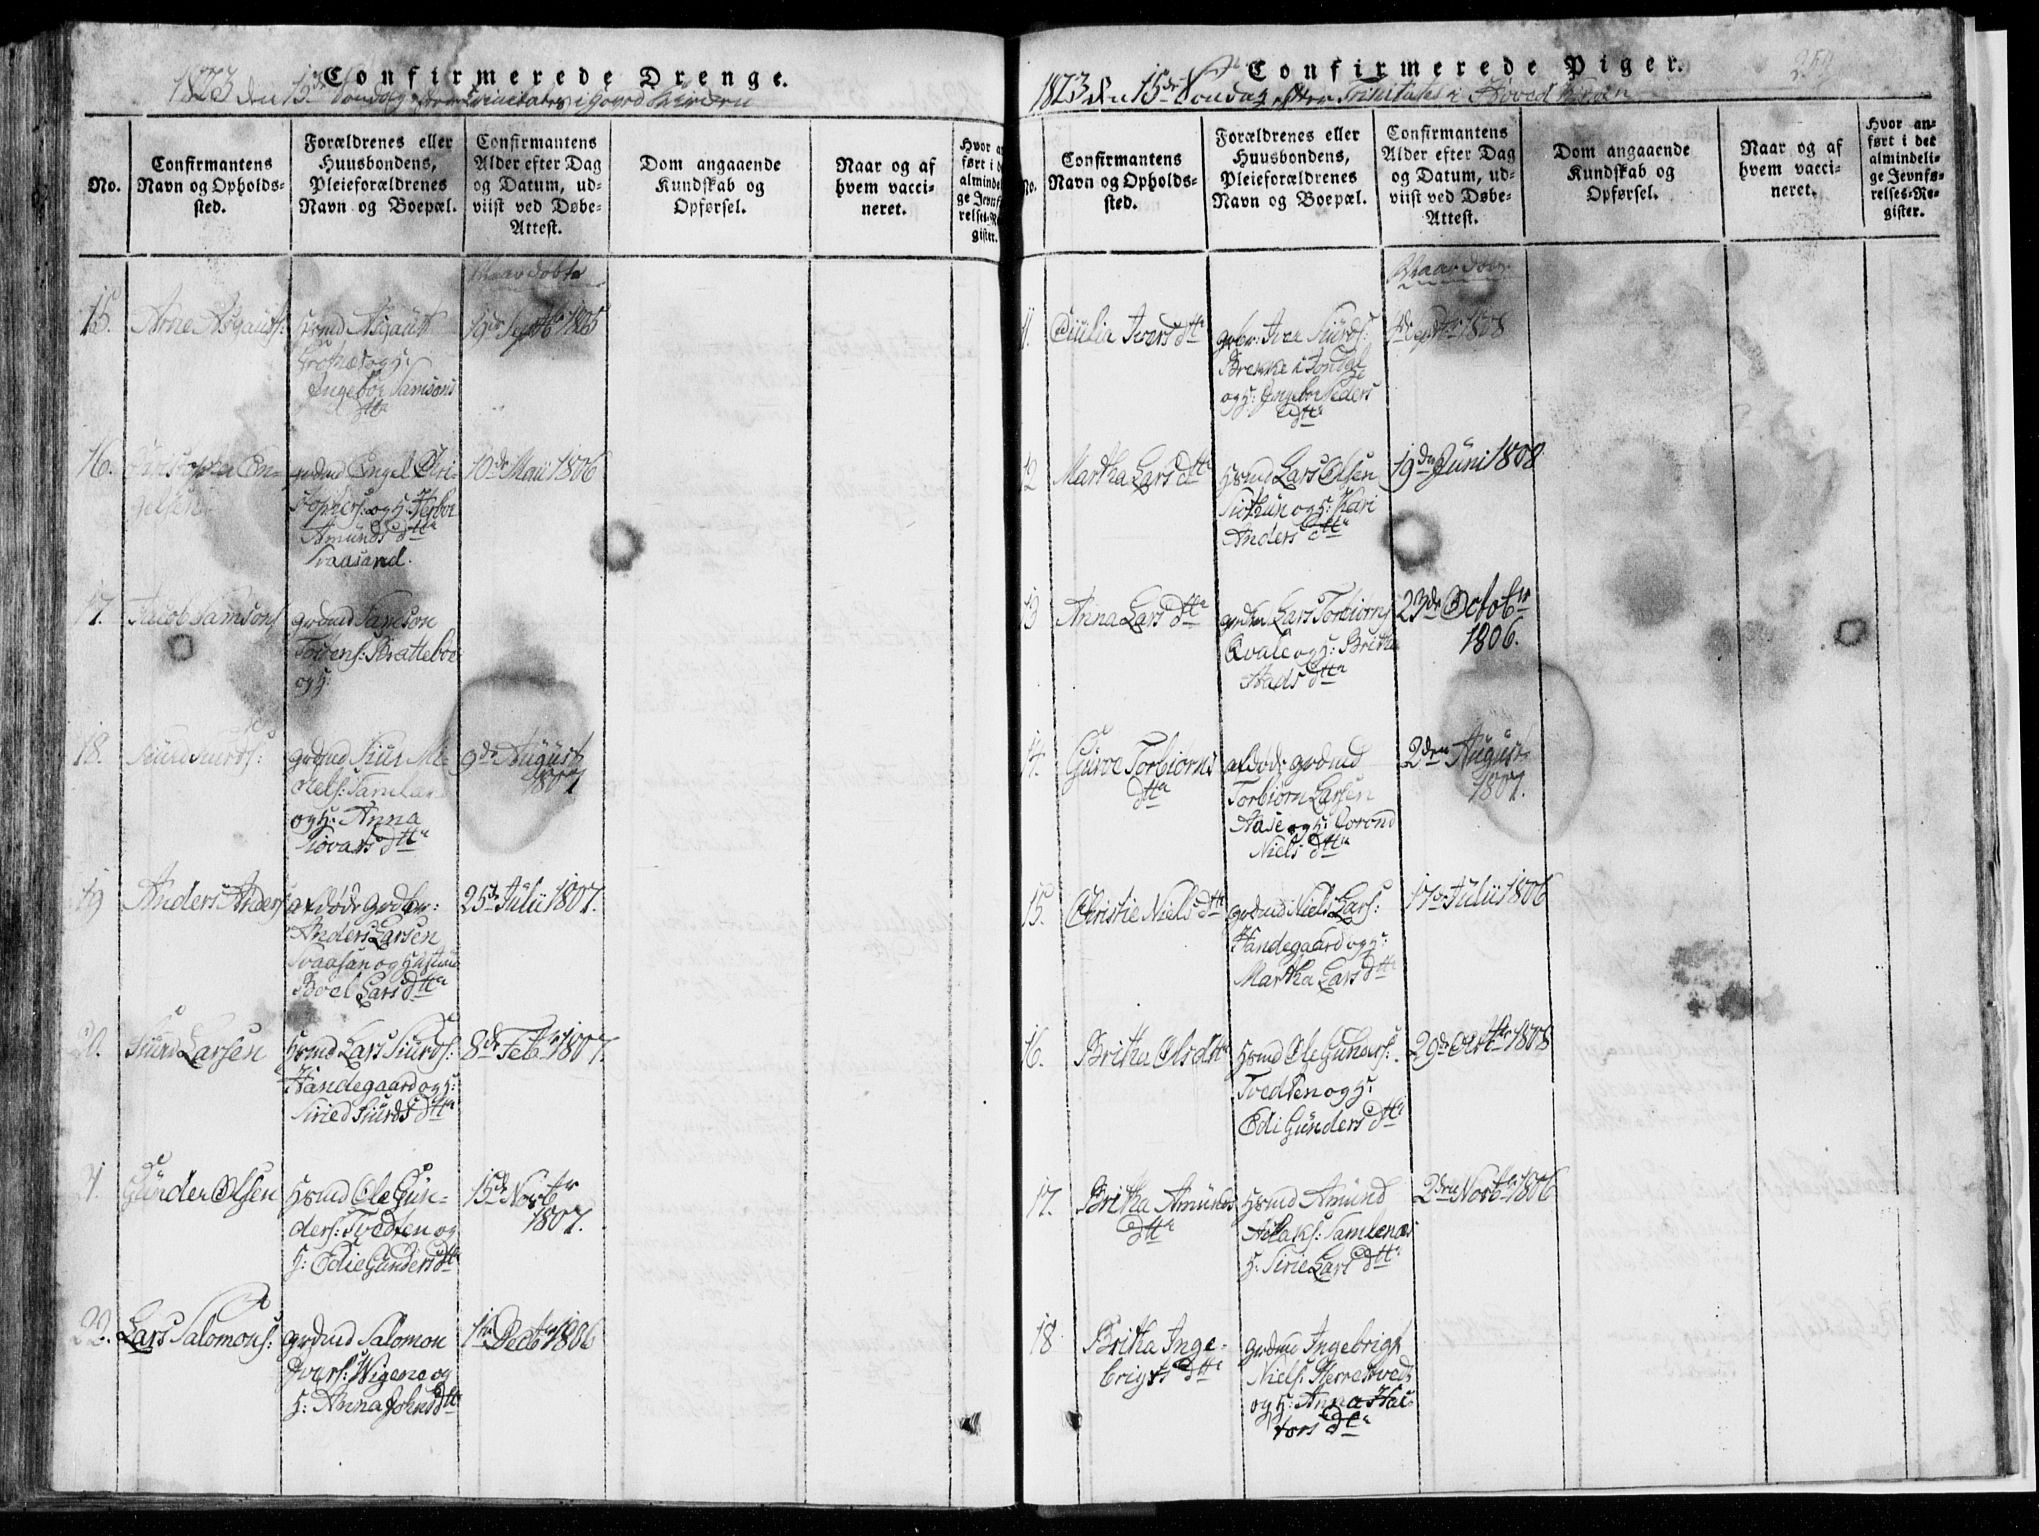 Confirmerede Drenge.
1823 den 15de Søndag
No.
Confirmantens
Navn og Opholds-
sted.
Forældrenes eller
Huusbondens,
Pleieforældrenes
Navn og Boepæl.
Confirmantens
Alder efter Dag
og Datum, ud-
viist ved Døbe-
Attest.
Dom angaaende
Kundskab og
Opførsel.
Naar og af
hvem vacci-
neret.
Hvor an
ført i d
almindel
ge Jevnf
relses-R
gister.
Naar døbte
15.
Arne Asgauts:
Hsmd Asgaut
og H:
Ingebor Samsons
dtr
Septbr 1805
16.
En-
gelsen
grdmd Engel Chri-
stophers: og H: Herbor
Amunds dtr
Traasand.
10de Maii 1806
17.
Jacob Samsons
grdmd Samson
Tostens: Bratteboe
og H:
18.
Siurd Siurds:
grdmd Siur Mi-
chels: Samland
og H: Anna
Siovats dtr
9de August
1807
19
Anders Anders
afdøde grdbr:
Anders Larsen
Traasan og Hustrue
Boel Lars dtr
25de Julii 1807.
20.
Siurd Larsen
Hsmd Lars Siurds:
Handegaard og H:
Siried Siurds dtr
8de Febr 1807.
21.
Gunder Olsen
Hsmd Ole Gun-
ders: Tvedten og
H: Odie Gunders dtr
15de Novbr
1807.
22.
Lars Salomons:
grdmd Salomon
Ivers: Wigene og
H: Anna Johns dtr
1te Decbr 1806
Confirmerede Piger.
254
1823 den 15de Søndag efter Trinitatis i Hoved Kirken
No.
Confirmantens
Navn og Opholds-
sted.
Forældrenes eller
Huusbondens,
Pleieforældrenes
Navn og Boepæl.
Confirmantens
Alder efter Dag
og Datum, ud-
viist ved Døbe-
Attest.
Dom angaaende
Kundskab og
Opførsel.
Naar og af
hvem vacci-
neret.
Hvor an-
ført i det
almindeli-
ge Jevnfø-
relses-Re-
gister.
Naar døbt.
11.
Ivers dtr
Siurds:
Brekke i Jondal
og H: Ingebor Peders
dtr
1808
12
Martha Lars dtr
Hsmd Lars Olsen
og H: Kari
Anders dtr
19de Juni 1808
13
Anna Lars dtr
Lars Torbiørns
Qvale og H: Britha
Mads dtr
23de Octobr
1806.
14.
Gurve Torbiørns
dtr
afdøde grdmd
Torbiørn Larsen
Aase og H: Gorond
Niels dtr
2den August
1807.
15.
Christie Niels dtr
grdmd Niels Lars:
Handegaard og H:
Martha Lars dtr
17de Julii 1806
16.
Britha Ols dtr
Hsmd Ole Gunders:
Tvedten og H:
Odi Gunders dtr
29de Octbr 1808
17.
Britha Amunds
dtr
Hsmd Amund
Aslaks: Samlenæs
H: Sirie Lars dtr
2den Novbr 1806
18
Britha Inge-
brigts dtr
grdmd Ingebrigt
Niels: Herrestvedt
og H: Anna Hal-
tors dtr